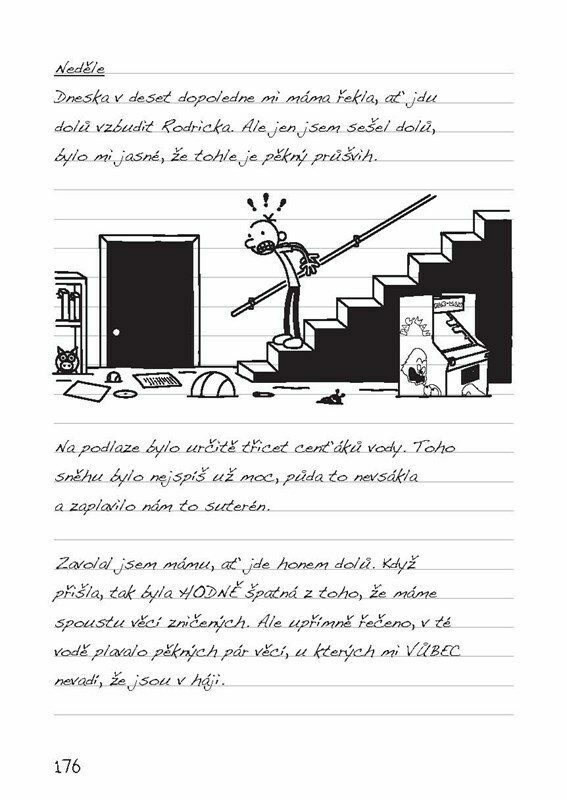 Neděle
Dneska v deset dopoledne mi máma řekla, ať jdu
dolů vzbudit Rodricka. Ale jen jsem sešel dolů,
bylo mi jasné, že tohle je pěkný průšvih.
! ! !
Na podlaze bylo určitě třicet centʼáků vody. Toho
sněhu bylo nejspíš už moc, půda to nevsákla
a zaplavilo nám to suterén.
Zavolal jsem mámu, ať jde honem dolů. Když
přišla, tak byla HODNĚ špatná z toho, že máme
spoustu věcí zničených. Ale upřímně řečeno, v té
vodě plavalo pěkných pár věcí, u kterých mi VŮBEC
nevadí, že jsou v háji.
176